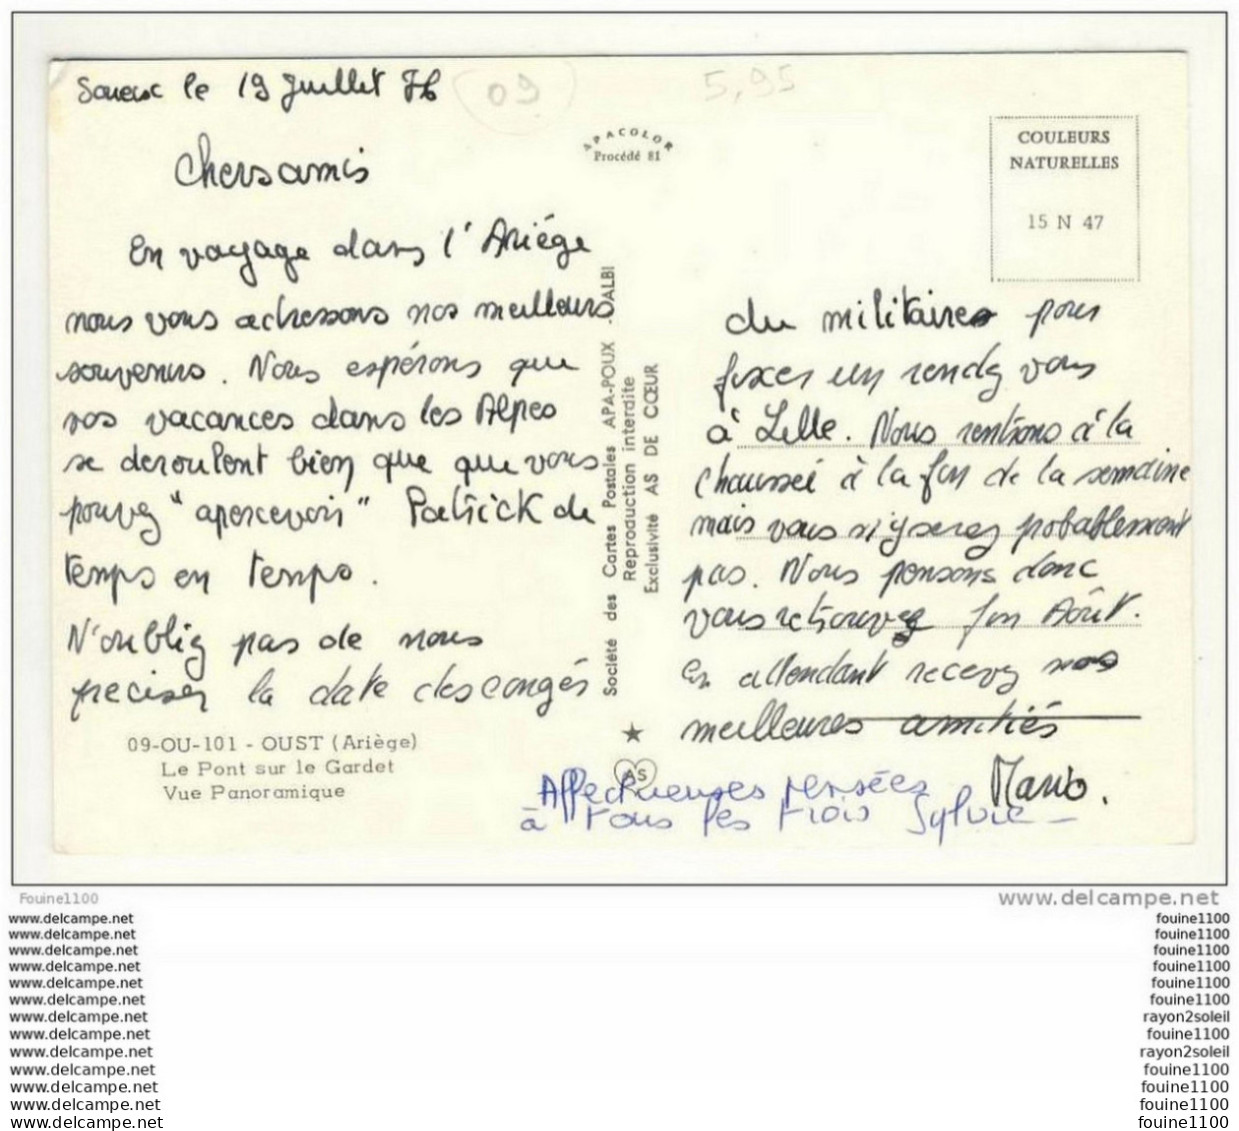 le 19 Juillet 76
09
5,95
APACOLOR
Procédé 81
COULEURS
NATURELLES
15 N 47
Chers amis
En voyage dans l'Ariége
nous vous adressons nos meilleurs
souvenirs. Nous espérons que
vos vacances dans les Alpes
se deroulent bien que que vous
pouvez "apercevoir" Patrick de
temps en temps.
N'oubliez pas de nous
preciser la date des congés
09-OU-101 - OUST (Ariège)
Le Pont sur le Gardet
Vue Panoramique
Société des Cartes Postales APA-POUX - ALBI
Reproduction interdite
Exclusivité AS DE CŒUR
AS
du militaires pour
fixer un rendez vous
à Lille. Nous rentrons à la
chaussée à la fin de la semaine
mais vous n'y serez probablement
pas. Nous pensons donc
vous retrouvez fin Août.
En attendant recevez nos
meilleures amitiés
Mario.
Affectueuses pensées
à tous les trois Sylvie
Fouine1100
www.delcampe.net
www.delcampe.net
fouine1100
www.delcampe.net
fouine1100
www.delcampe.net
fouine1100
www.delcampe.net
fouine1100
www.delcampe.net
fouine1100
www.delcampe.net
fouine1100
www.delcampe.net
rayon2soleil
www.delcampe.net
fouine1100
www.delcampe.net
rayon2soleil
www.delcampe.net
fouine1100
www.delcampe.net
fouine1100
www.delcampe.net
fouine1100
www.delcampe.net
fouine1100